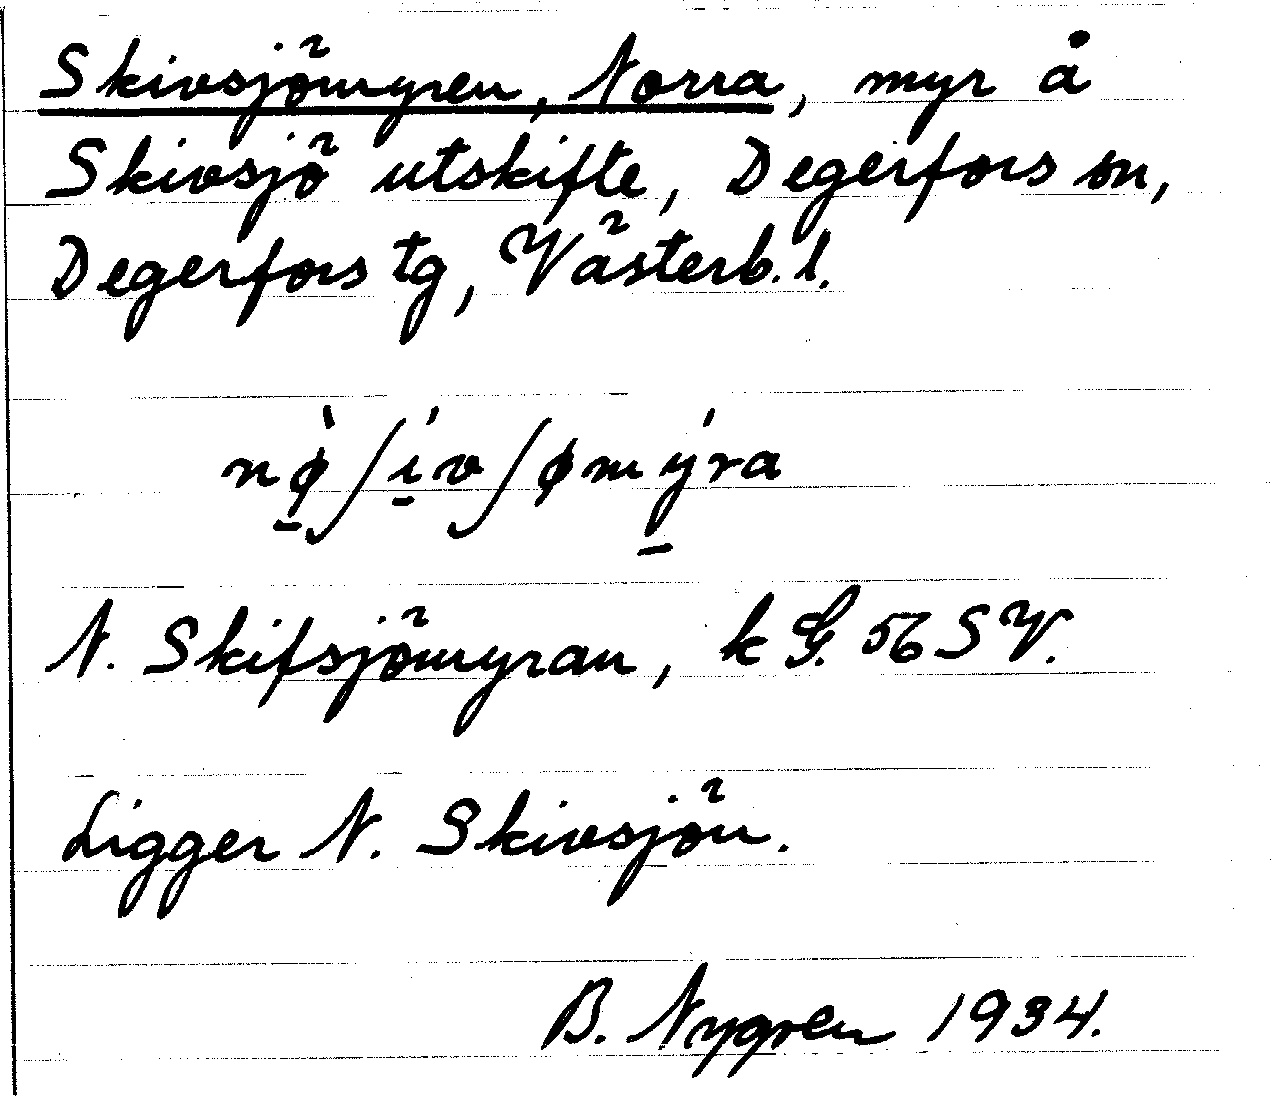 Skivsjömyren, Norra, myr å
Skivsjö utskifte, Degerfors sn,
Degerfors tg, Västerb. l.
nø̱̀ʃí̱vʃømý̱ra
N. Skifsjömyran, k G. 56 SV.
Ligger N. Skivsjön.
B. Nygren 1934.